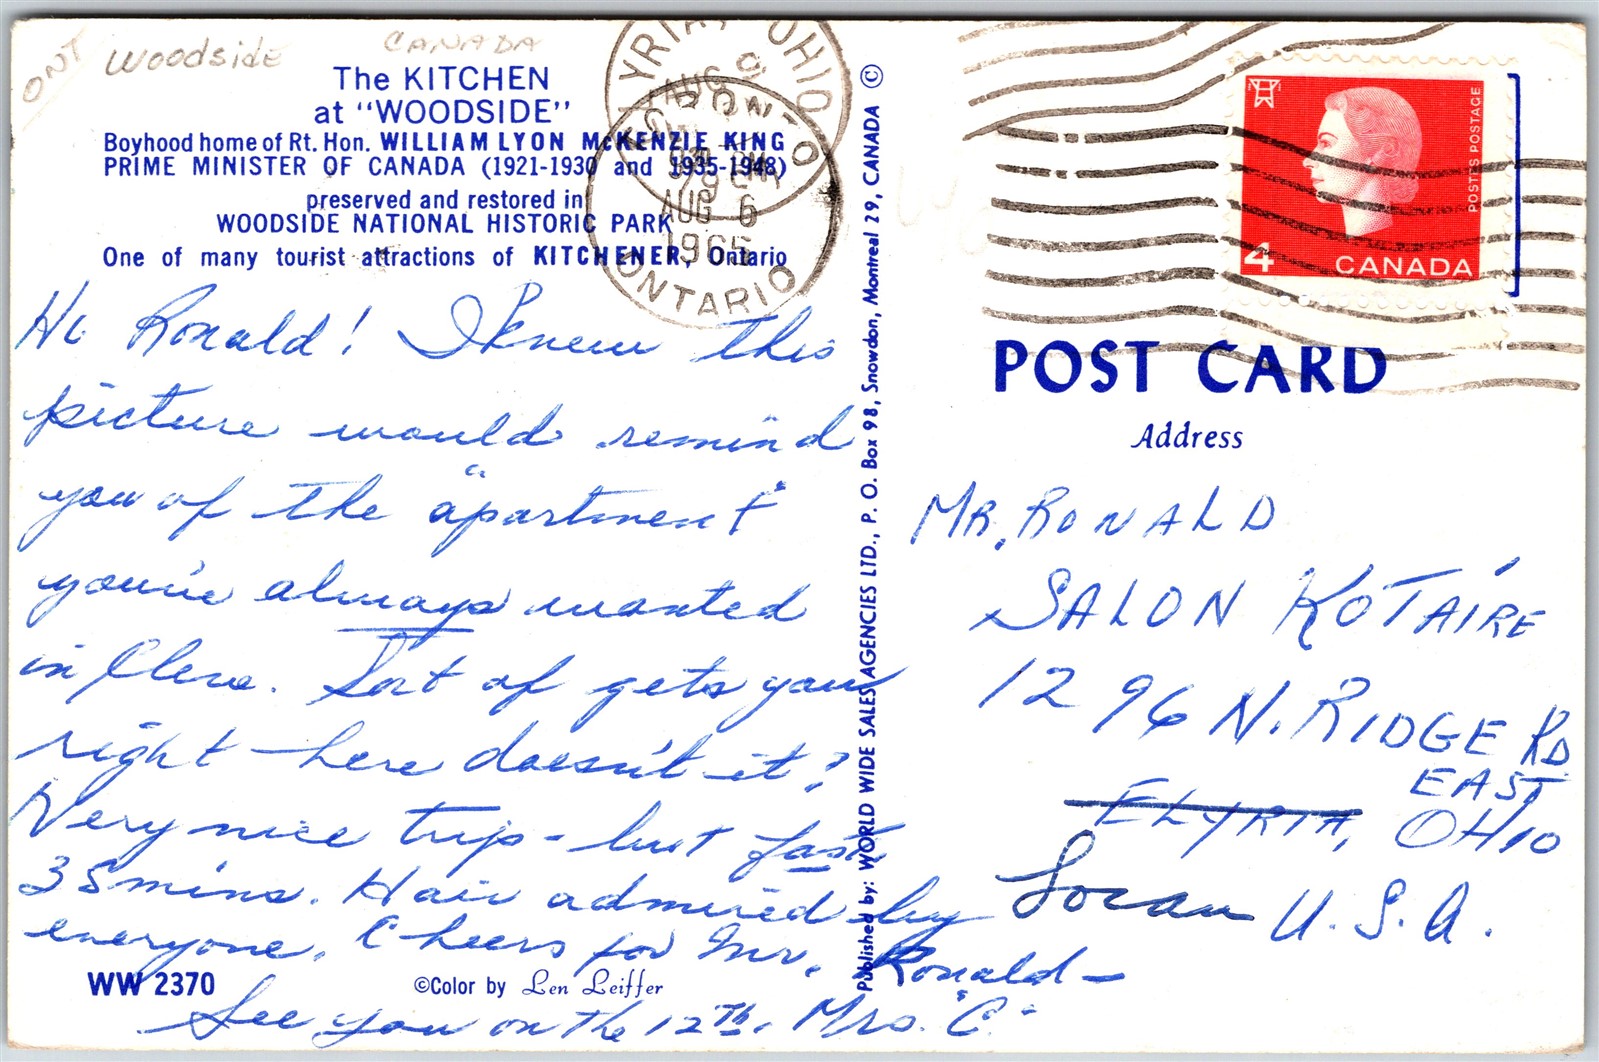 ONT
Woodside
CANADA
The KITCHEN
at "WOODSIDE"
Boyhood home of Rt. Hon. WILLIAM LYON McKENZIE KING
PRIME MINISTER OF CANADA (1921-1930 and 1935-1948)
preserved and restored in
WOODSIDE NATIONAL HISTORIC PARK
One of many tourist attractions of KITCHENER, Ontario
Hi Ronald! I knew this
picture would remind
you of the "apartment"
you've always wanted
in Cleve. Sort of gets you
right here doesn't it?
Very nice trip - but fast,
35 mins. Hair admired by
everyone. Cheers for Mr. Ronald -
See you on the 12th. Mrs. "C."
WW 2370
©Color by Len Leiffer
Published by: WORLD WIDE SALES AGENCIES LTD., P. O. Box 98, Snowdon, Montreal 29, CANADA ©
ELYRIA, OHIO
AUG 9
TORONTO
PM
AUG 6
1965
ONTARIO
POSTES POSTAGE
4 CANADA
POST CARD
Address
MR. RONALD
SALON KOTAIRE
1296 N. RIDGE RD
EAST
ELYRIA, OHIO
Lorain U.S.A.